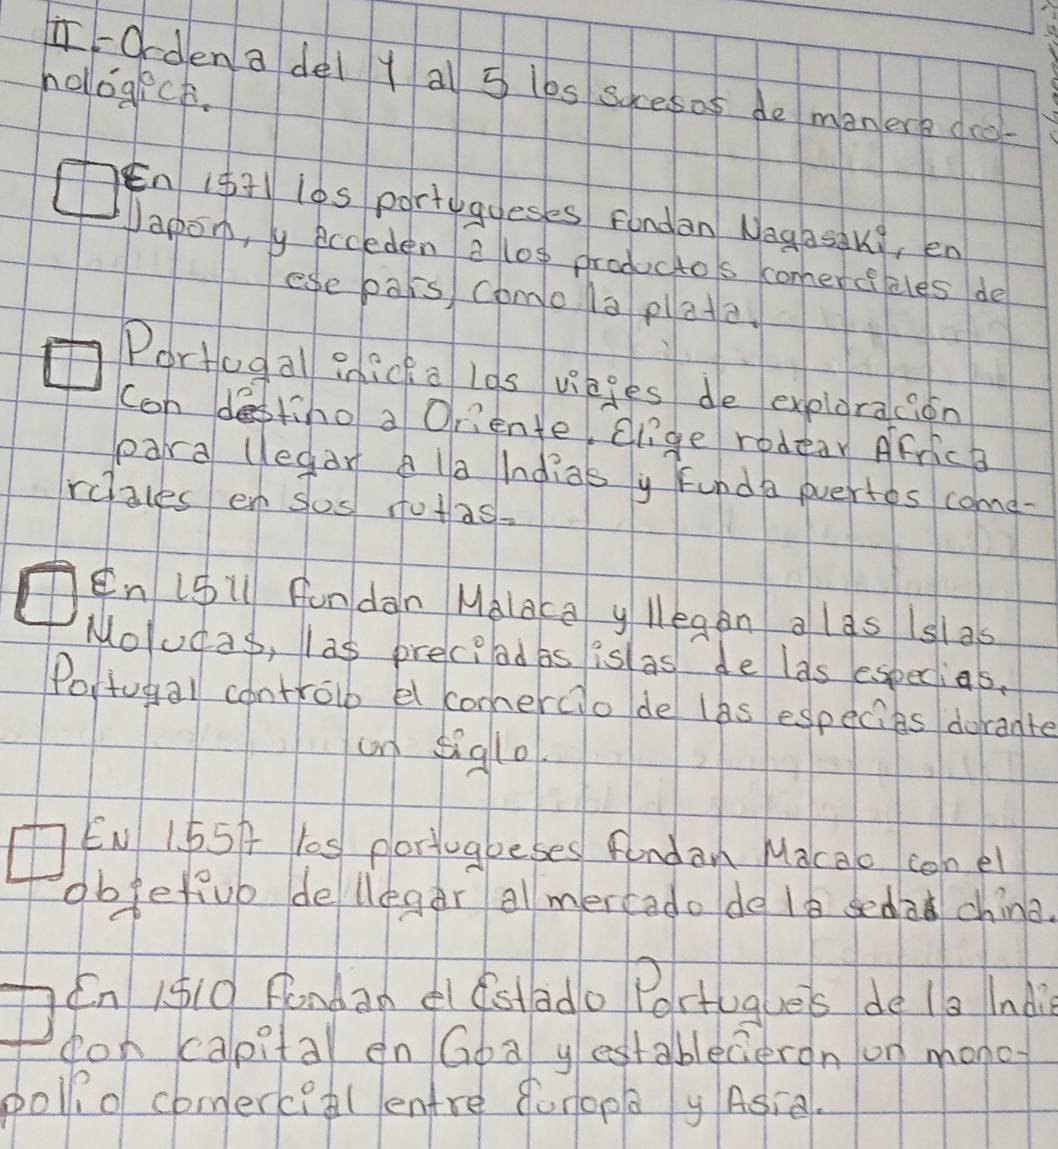 II-Ordena del 1 al 5 los sucesos de manera cro-
nológica.
En 1571 los portugueses fundan Nagasaki, en
Japon, y acceden a los productos comerciales de
ese pais, como la plata.
Portugal inicia los viajes de exploración
con destino a Oriente. Elige rodear Africa
para llegar a la Indias y funda puertos come-
rciales en sus rutas.
En 1511 fundan Malaca y llegan a las Islas
Molucas, las preciadas islas de las especias.
Portugal controlo el comercio de las especias durante
un siglo.
EN 1557 los portugueses fundan Macao con el
objetivo de llegar al mercado de la seda china.
En 1510 fundan el Estado Portugués de la India
con capital en Goa y establecieron un mono-
polio comercial entre Europa y Asia.